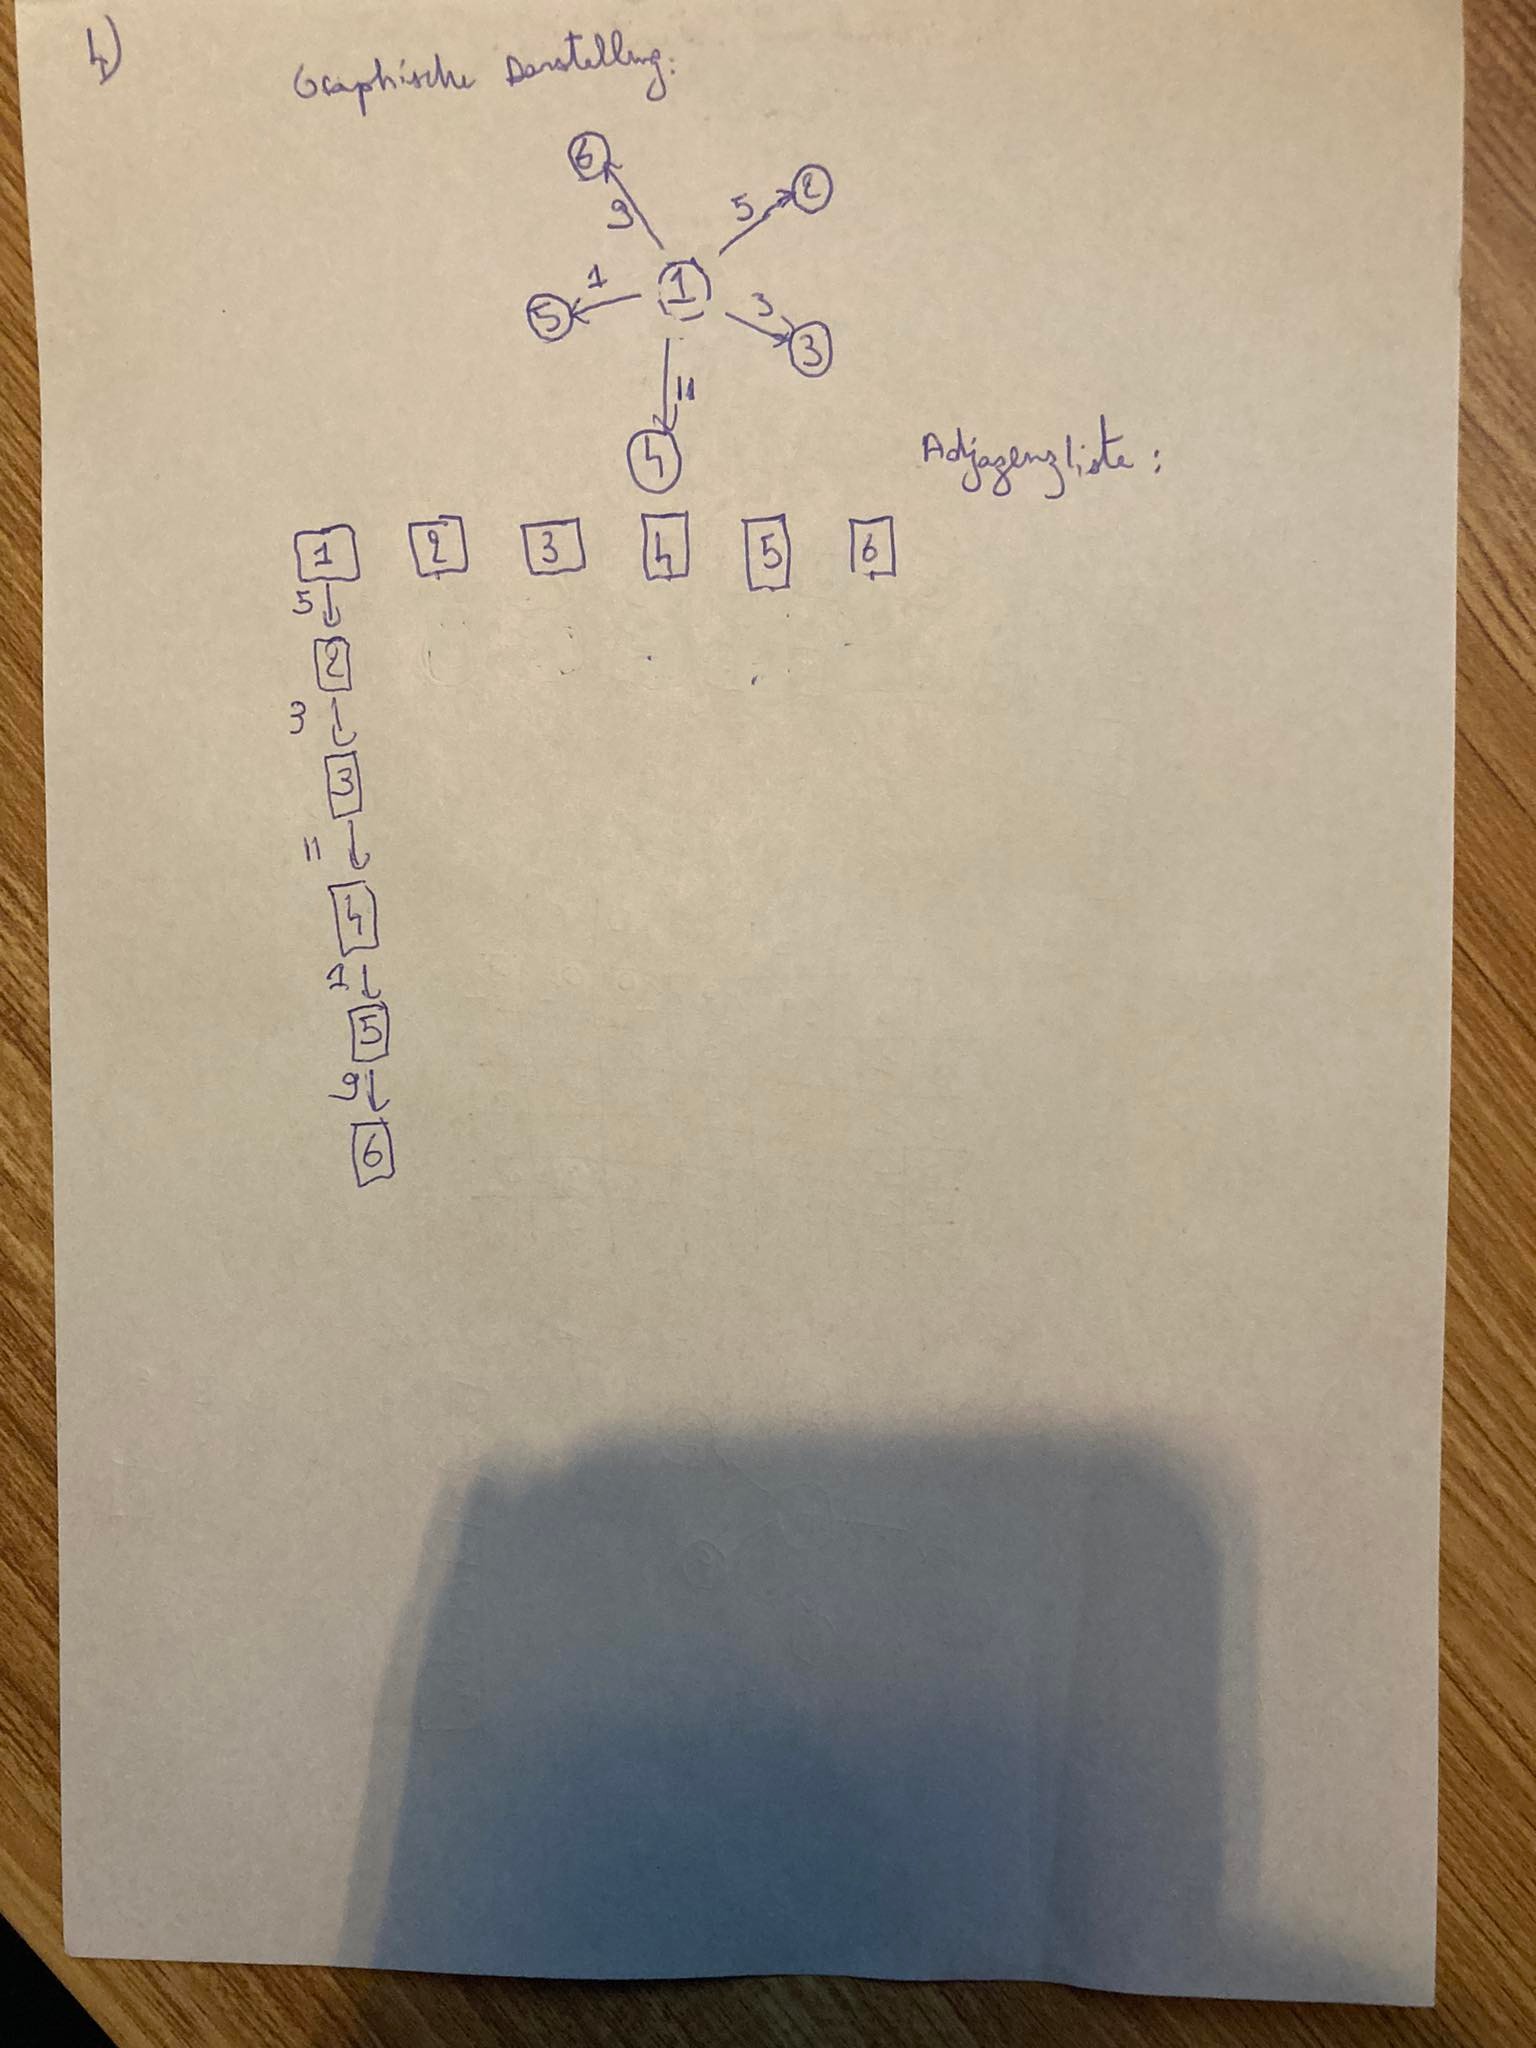 4)
Graphische Darstellung:
6
2
9
5
1
1
5
3
3
11
4
Adjazenzliste:
1 2 3 4 5 6
5
2
3
3
11
4
1
5
9
6